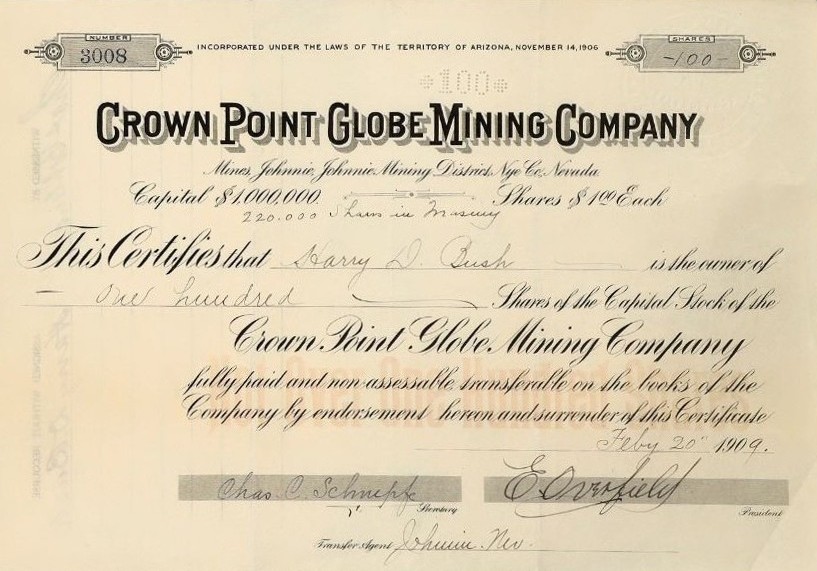 NUMBER
3008
INCORPORATED UNDER THE LAWS OF THE TERRITORY OF ARIZONA, NOVEMBER 14, 1906
SHARES
-100-
*100*
CROWN POINT GLOBE MINING COMPANY
Mines, Johnnie, Johnnie Mining District, Nye Co, Nevada
Capital $1,000,000. Shares $1.00 Each
220.000 Shares in
This Certifies that Harry D. Bush is the owner of
One hundred Shares of the Capital Stock of the
Crown Point Globe Mining Company
fully paid and non-assessable, transferable on the books of the
Company by endorsement hereon and surrender of this Certificate
Feby 20" 1909.
Chas. C. Schnepfe E. Overfield
Secretary President
Transfer Agent Johnnie Nev.